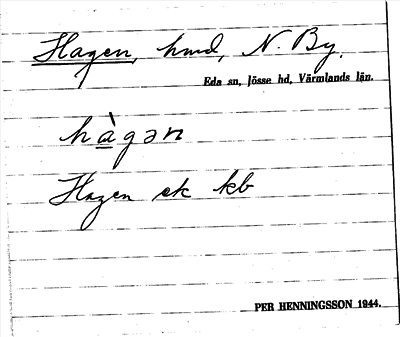 Hagen, hmd, N. By.
Eda sn, Jösse hd, Värmlands län.
hàgən
Hagen ek kb
PER HENNINGSSON 1944.